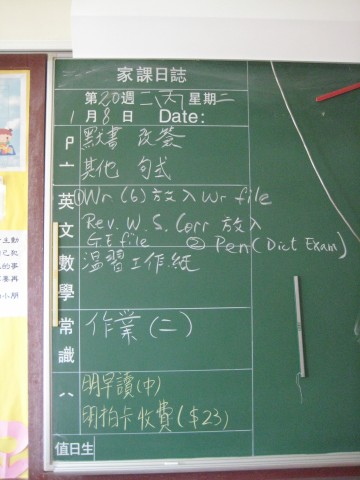 家課日誌
第20週 二丙 星期二
1月8日 Date:
默書 改簽
其他 句式
英文 ①Wr (6) 放入 Wr file
Rev. W. S. Corr 放入
GE file ② Pen (Dict Exam)
數學 溫習工作紙
常識 作業(二)
明早讀(中)
明拍卡收費($23)
值日生
主動